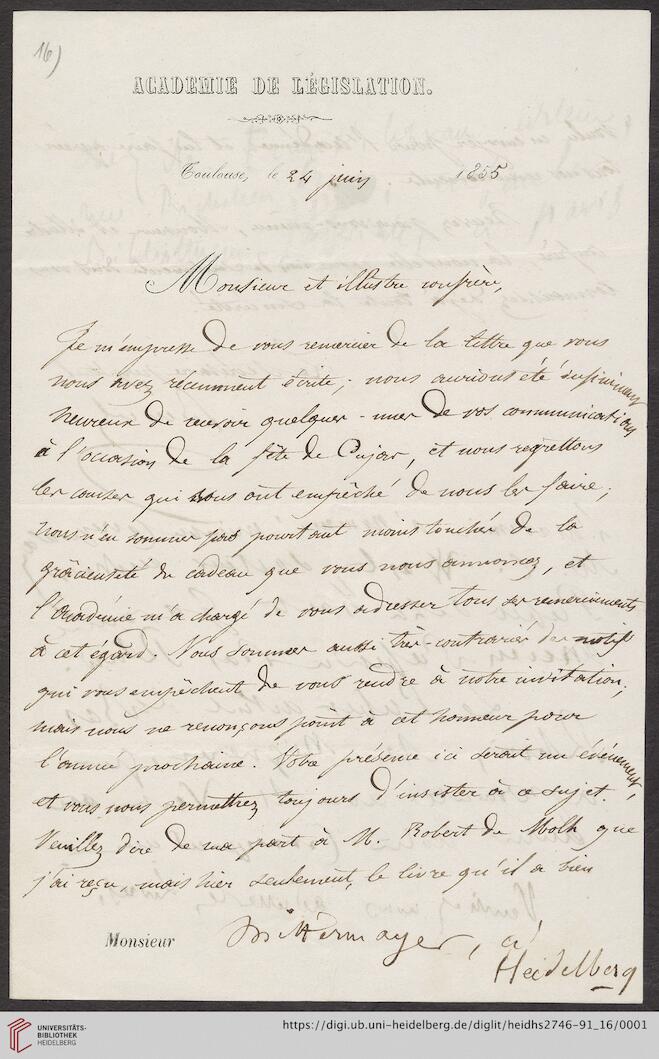 16)
ACADEMIE DE LÉGISLATION.
Toulouse, le 24 juin 1855
Monsieur et illustre confrère,
Je m'empresse de vous remercier de la lettre que vous
nous avez récemment écrite; nous aurions été infiniment
heureux de recevoir quelques-unes de vos communications
à l'occasion de la fête de Cujas, et nous regrettons
les causes qui vous ont empêché de nous les faire;
nous n'en sommes pas pourtant moins touchés de la
grâcieuseté du cadeau que vous nous annoncez, et
l'académie m'a chargé de vous adresser tous ses remerciements
à cet égard. Nous sommes aussi très-contrariés des motifs
qui vous empêchent de vous rendre à notre invitation;
mais nous ne renonçons point à cet honneur pour
l'année prochaine. Votre présence ici serait un événement,
et vous nous permettrez toujours d'insister à ce sujet.
Veuillez dire de ma part à M. Robert de Mohl que
j'ai reçu, mais hier seulement, le livre qu'il a bien
Monsieur Mittermayer, à
Heidelberg
UNIVERSITÄTS-
BIBLIOTHEK
HEIDELBERG
https://digi.ub.uni-heidelberg.de/diglit/heidhs2746-91_16/0001